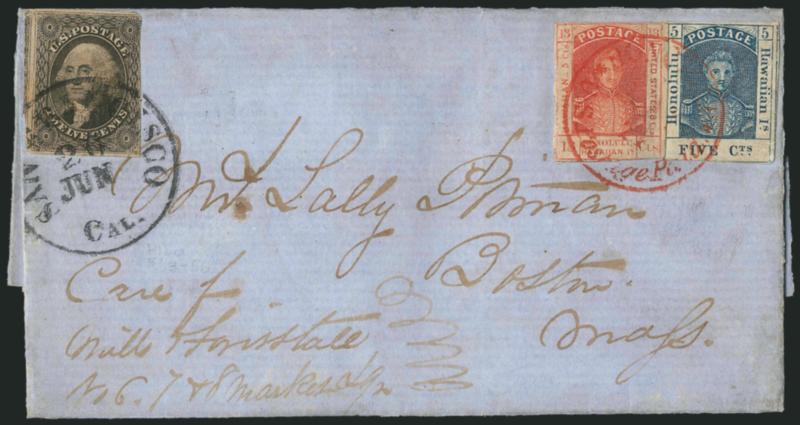 U.S. POSTAGE
TWELVE CENTS
SAN FRANCISCO
20
JUN
CAL.
13 13
HAWAIIAN 5 Cts
UNITED STATES 8 Cts
HONOLULU
HAWAIIAN Is.
Cts
5 POSTAGE 5
Honolulu
Hawaiian Is
FIVE CTs
Mrs. Sally Pitman
Boston
Mass.
Care of
Mills &
No 6. 7 & 8 Market Sq